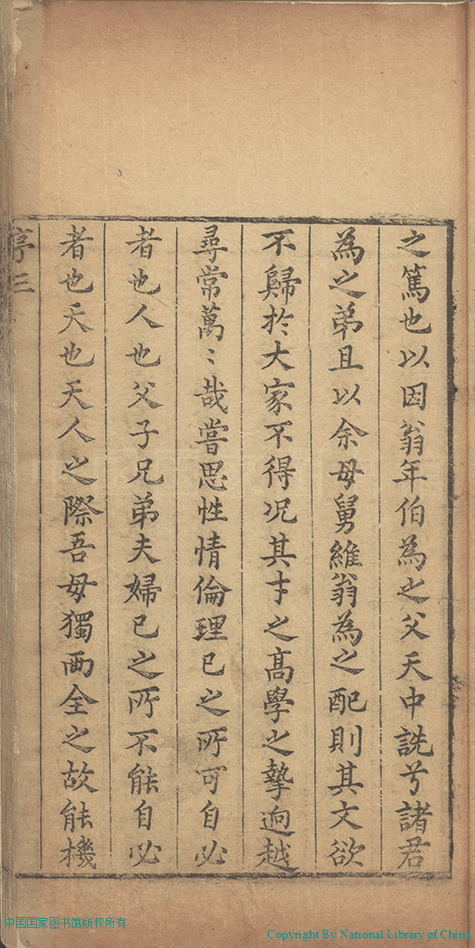 之篤也以因翁年伯為之父天中詵兮諸君
為之弟且以余母舅維翁為之配則其文欲
不歸於大家不得况其才之高學之摯逈越
尋常萬〻哉嘗思性情倫理已之所可自必
者也人也父子兄弟夫婦已之所不能自必
者也天也天人之際吾母獨両全之故能機
序三
中国国家图书馆版权所有
Copyright By National Library of China